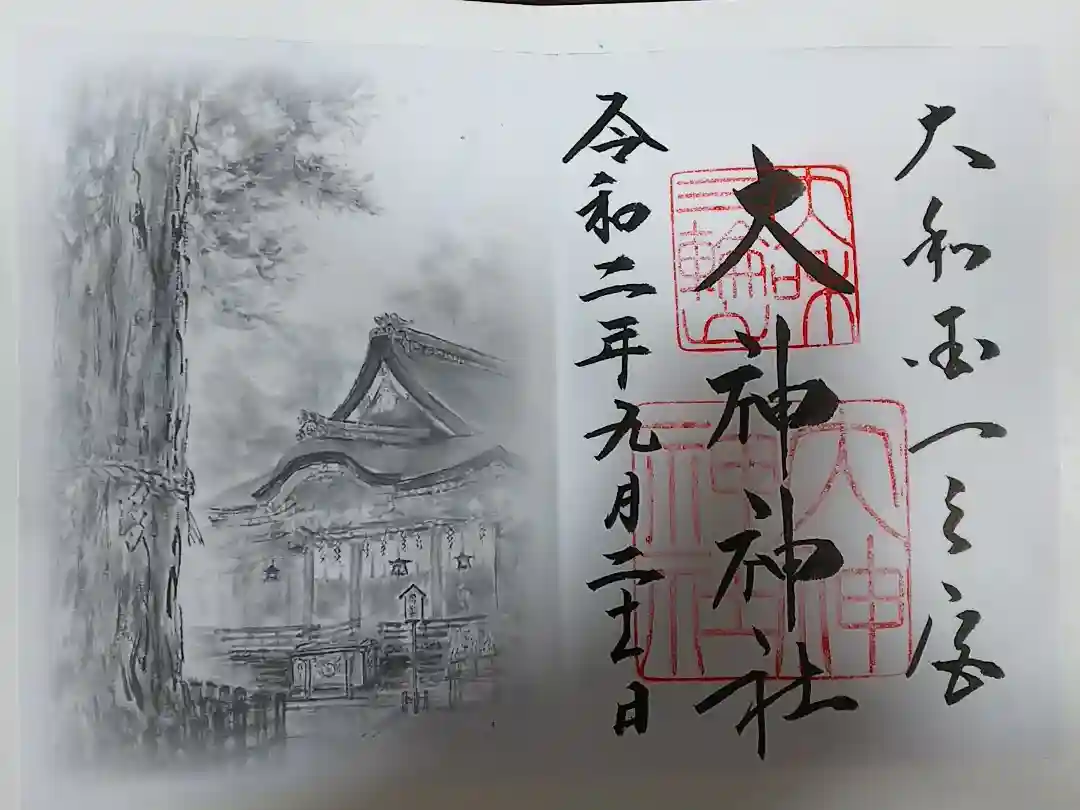 大和国一之宮
大神神社
令和二年九月二十一日
大神
神社